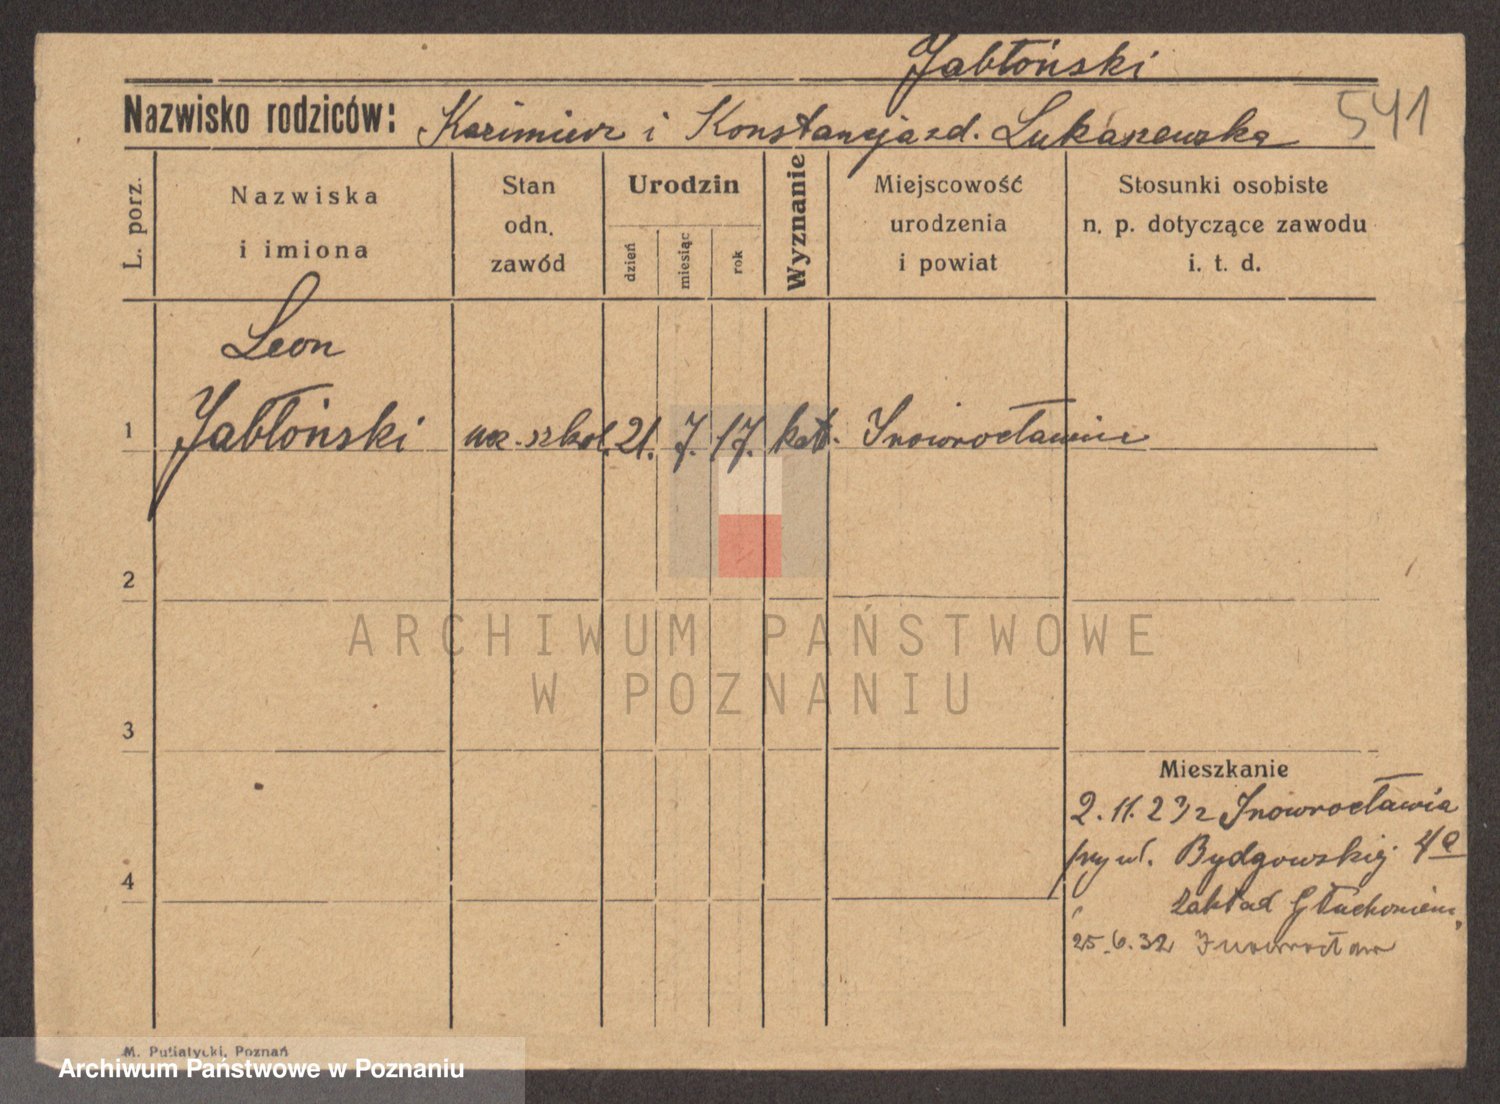 Jabłoński
541
Nazwisko rodziców: Kazimierz i Konstancja zd. Łukaszewska
L. porz.
Nazwiska
i imiona
Stan
odn.
zawód
Urodzin
dzień
miesiąc
rok
Wyznanie
Miejscowość
urodzenia
i powiat
Stosunki osobiste
n. p. dotyczące zawodu
i. t. d.
Leon
1 Jabłoński ucz. szkol. 21. 7. 17. kat. Inowrocławiu
2
ARCHIWUM PAŃSTWOWE
W POZNANIU
3
Mieszkanie
2. 11. 23 z Inowrocławia
przy ul. Bydgowskiej 4a
4
Zakład Głuchoniem.
25.6.32 Inowrocław
M. Putiatycki, Poznań
Archiwum Państwowe w Poznaniu